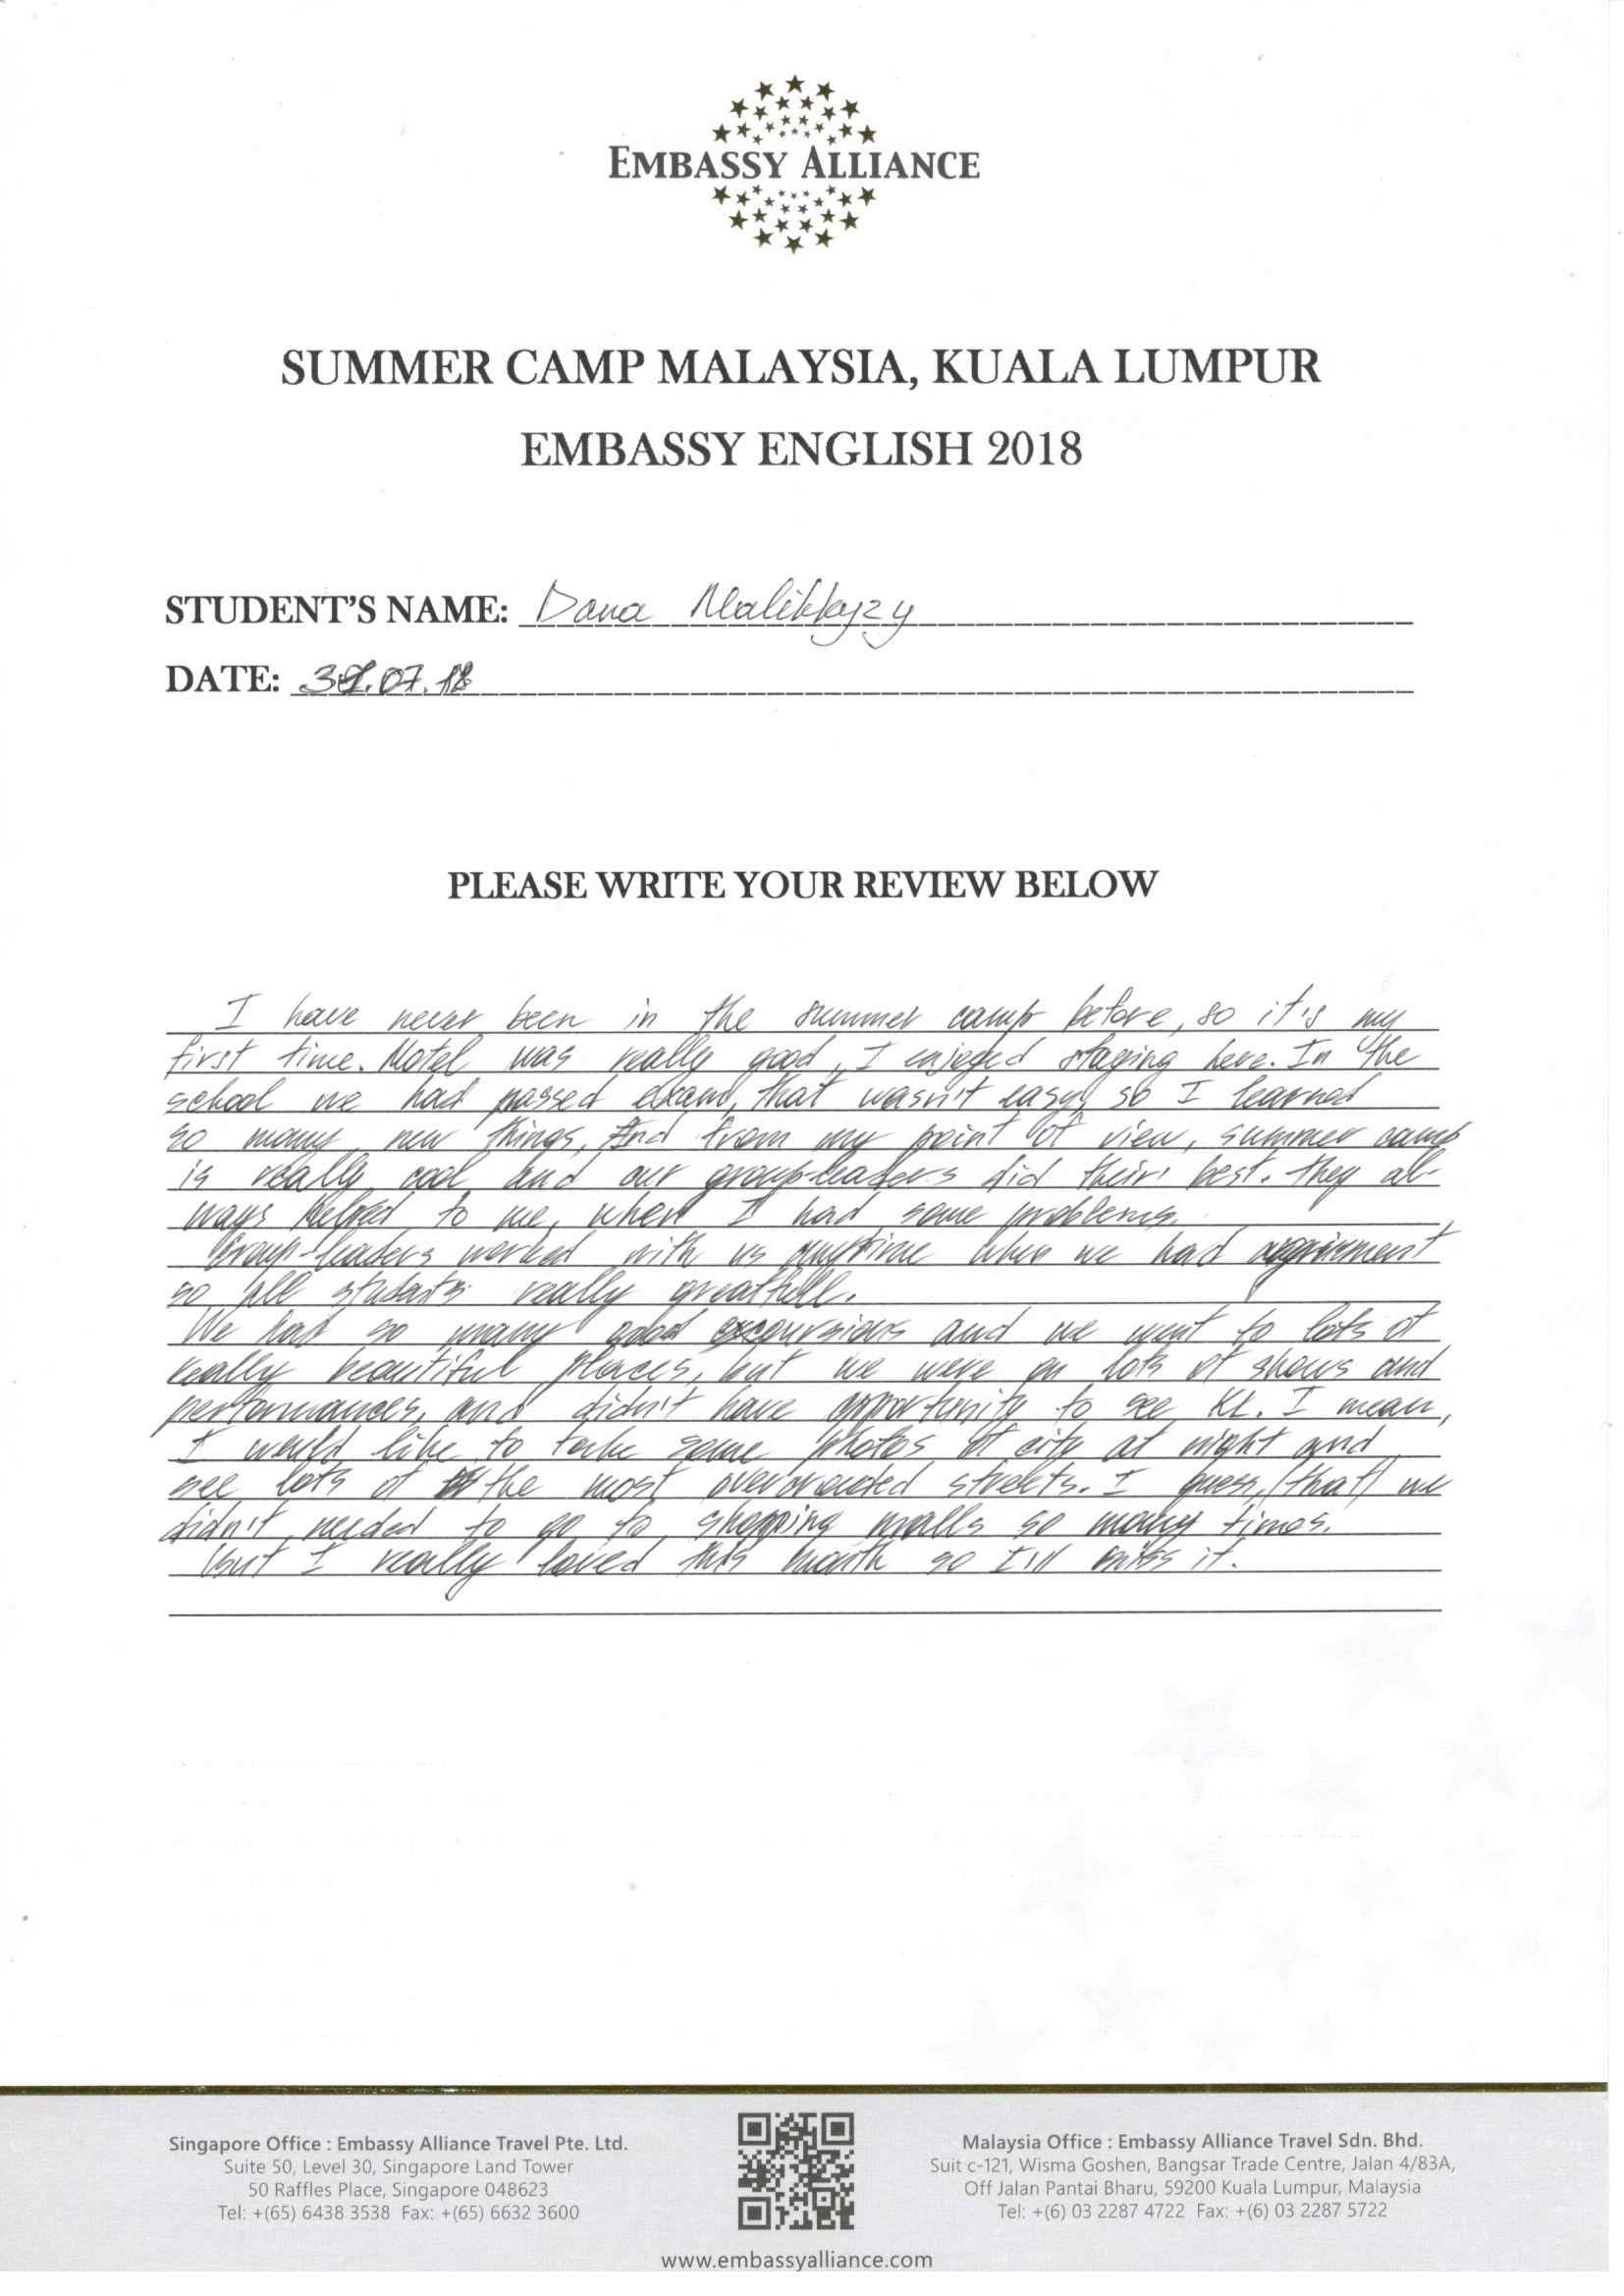 EMBASSY ALLIANCE
SUMMER CAMP MALAYSIA, KUALA LUMPUR
EMBASSY ENGLISH 2018
STUDENT'S NAME: Dana Malikkyzy
DATE: .07.18
PLEASE WRITE YOUR REVIEW BELOW
I have never been in the summer camp before, so it's my
first time. Hotel was really good, I enjoyed staying here. In the
school we had passed exam, that wasn't easy, so I learned
so many new things, And from my point of view, summer camp
is really cool and our group-leaders did their best. They al-
ways helped to me, when I had some problems.
Group-leaders worked with us anytime when we had
so all students really greatfull.
We had so many good excoursions and we went to lots of
really beautiful places, but we were on lots of shows and
performances, and didn't have opportunity to see KL. I mean,
I would like to take some photos of city at night and
see lots of the most overcrowded streets. I guess, (that) we
didn't needed to go to shopping malls so many times.
But I really loved this month so I'll miss it.
Singapore Office : Embassy Alliance Travel Pte. Ltd.
Suite 50, Level 30, Singapore Land Tower
50 Raffles Place, Singapore 048623
Tel: +(65) 6438 3538 Fax: +(65) 6632 3600
Malaysia Office : Embassy Alliance Travel Sdn. Bhd.
Suit c-121, Wisma Goshen, Bangsar Trade Centre, Jalan 4/83A,
Off Jalan Pantai Bharu, 59200 Kuala Lumpur, Malaysia
Tel: +(6) 03 2287 4722 Fax: +(6) 03 2287 5722
www.embassyalliance.com